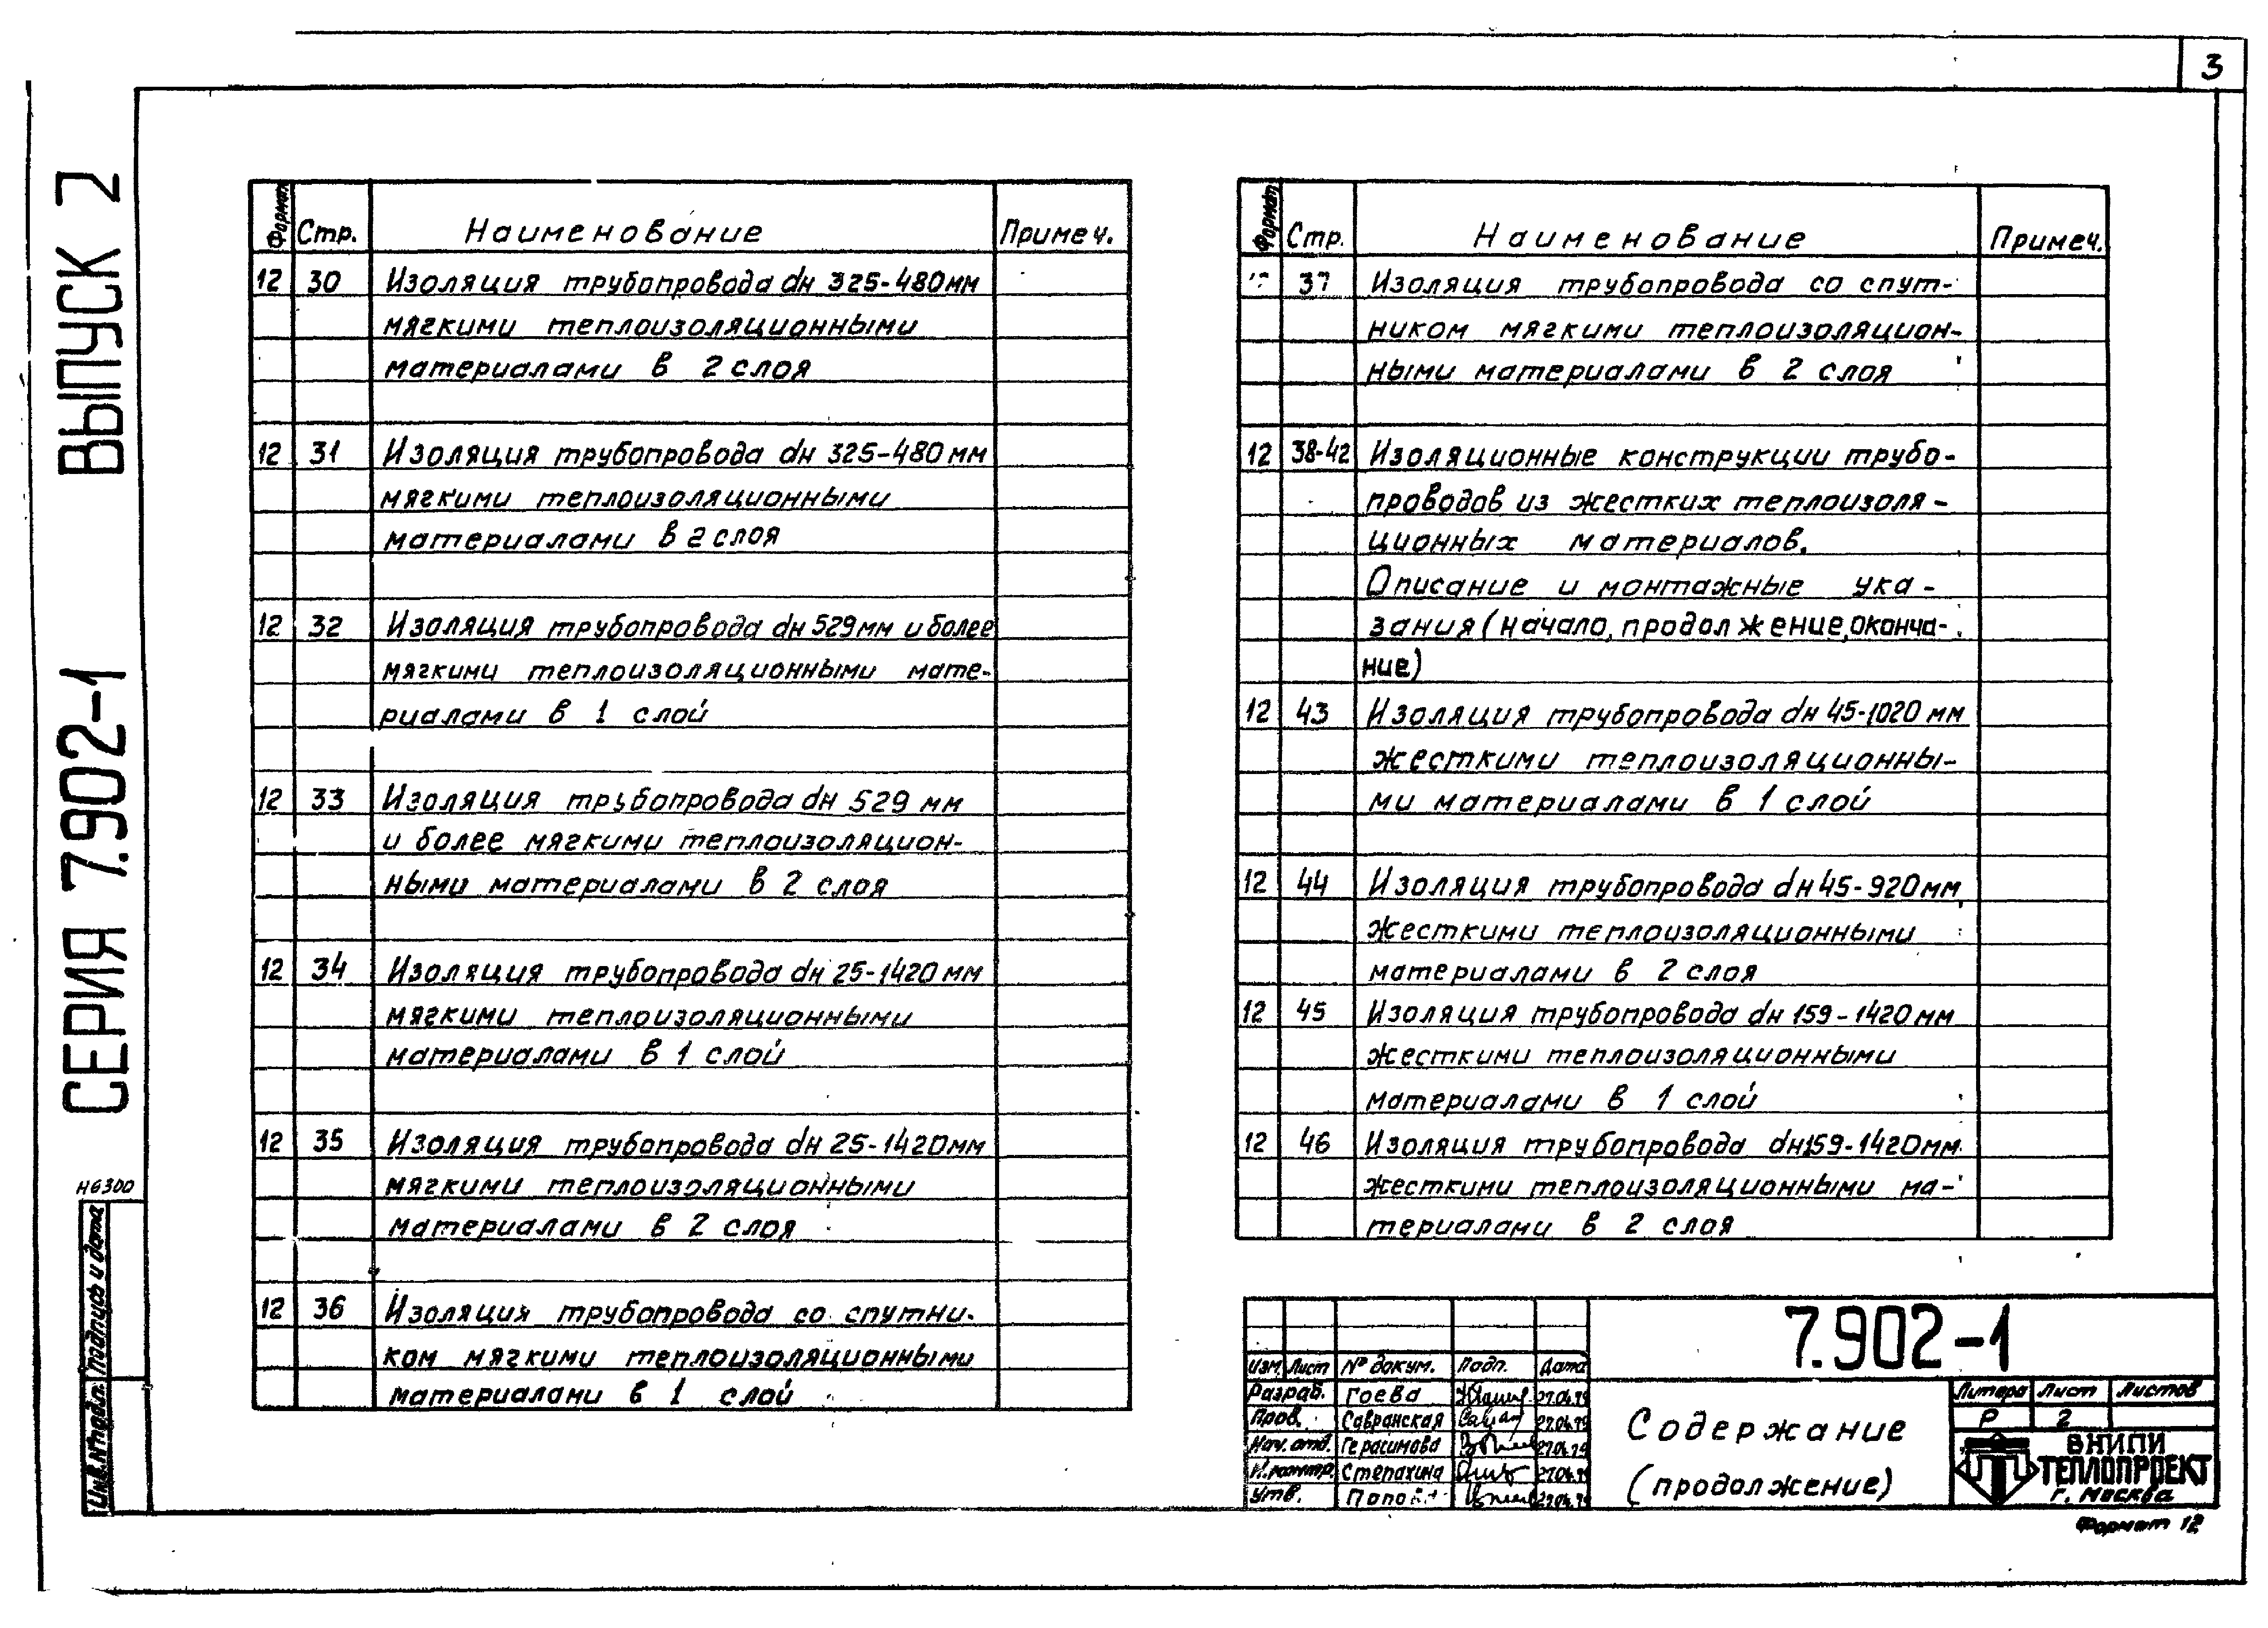 3
СЕРИЯ 7.902-1 ВЫПУСК 2
Формат Стр. Наименование Примеч.
12 30 Изоляция трубопровода dн 325-480мм
мягкими теплоизоляционными
материалами в 2 слоя
12 31 Изоляция трубопровода dн 325-480мм
мягкими теплоизоляционными
материалами в 2 слоя
12 32 Изоляция трубопровода dн 529мм и более
мягкими теплоизоляционными мате-
риалами в 1 слой
12 33 Изоляция трубопровода dн 529 мм
и более мягкими теплоизоляцион-
ными материалами в 2 слоя
12 34 Изоляция трубопровода dн 25-1420мм
мягкими теплоизоляционными
материалами в 1 слой
12 35 Изоляция трубопровода dн 25-1420мм
мягкими теплоизоляционными
материалами в 2 слоя
12 36 Изоляция трубопровода со спутни-
ком мягкими теплоизоляционными
материалами в 1 слой
Формат Стр. Наименование Примеч.
37 Изоляция трубопровода со спут-
ником мягкими теплоизоляцион-
ными материалами в 2 слоя
12 38-42 Изоляционные конструкции трубо-
проводов из жестких теплоизоля-
ционных материалов.
Описание и монтажные ука-
зания (начало, продолжение, оконча-
ние)
12 43 Изоляция трубопровода dн 45-1020 мм
жесткими теплоизоляционны-
ми материалами в 1 слой
12 44 Изоляция трубопровода dн 45-920мм
жесткими теплоизоляционными
материалами в 2 слоя
12 45 Изоляция трубопровода dн 159-1420мм
жесткими теплоизоляционными
материалами в 1 слой
12 46 Изоляция трубопровода dн 159-1420мм
жесткими теплоизоляционными ма-
териалами в 2 слоя
Н6300
Инв.№подл. Подпись и дата
7.902-1
Изм. Лист № докум. Подп. Дата
Разраб. Гоева 27.04.79
Пров. Савранская 27.04.79
Нач. отд. Герасимова 27.04.79
Н.контр. Степахина 27.04.79
Утв. 27.04.79
Содержание
(продолжение)
Литера Лист Листов
Р 2
ВНИПИ
ТЕПЛОПРОЕКТ
г. Москва
Формат 12